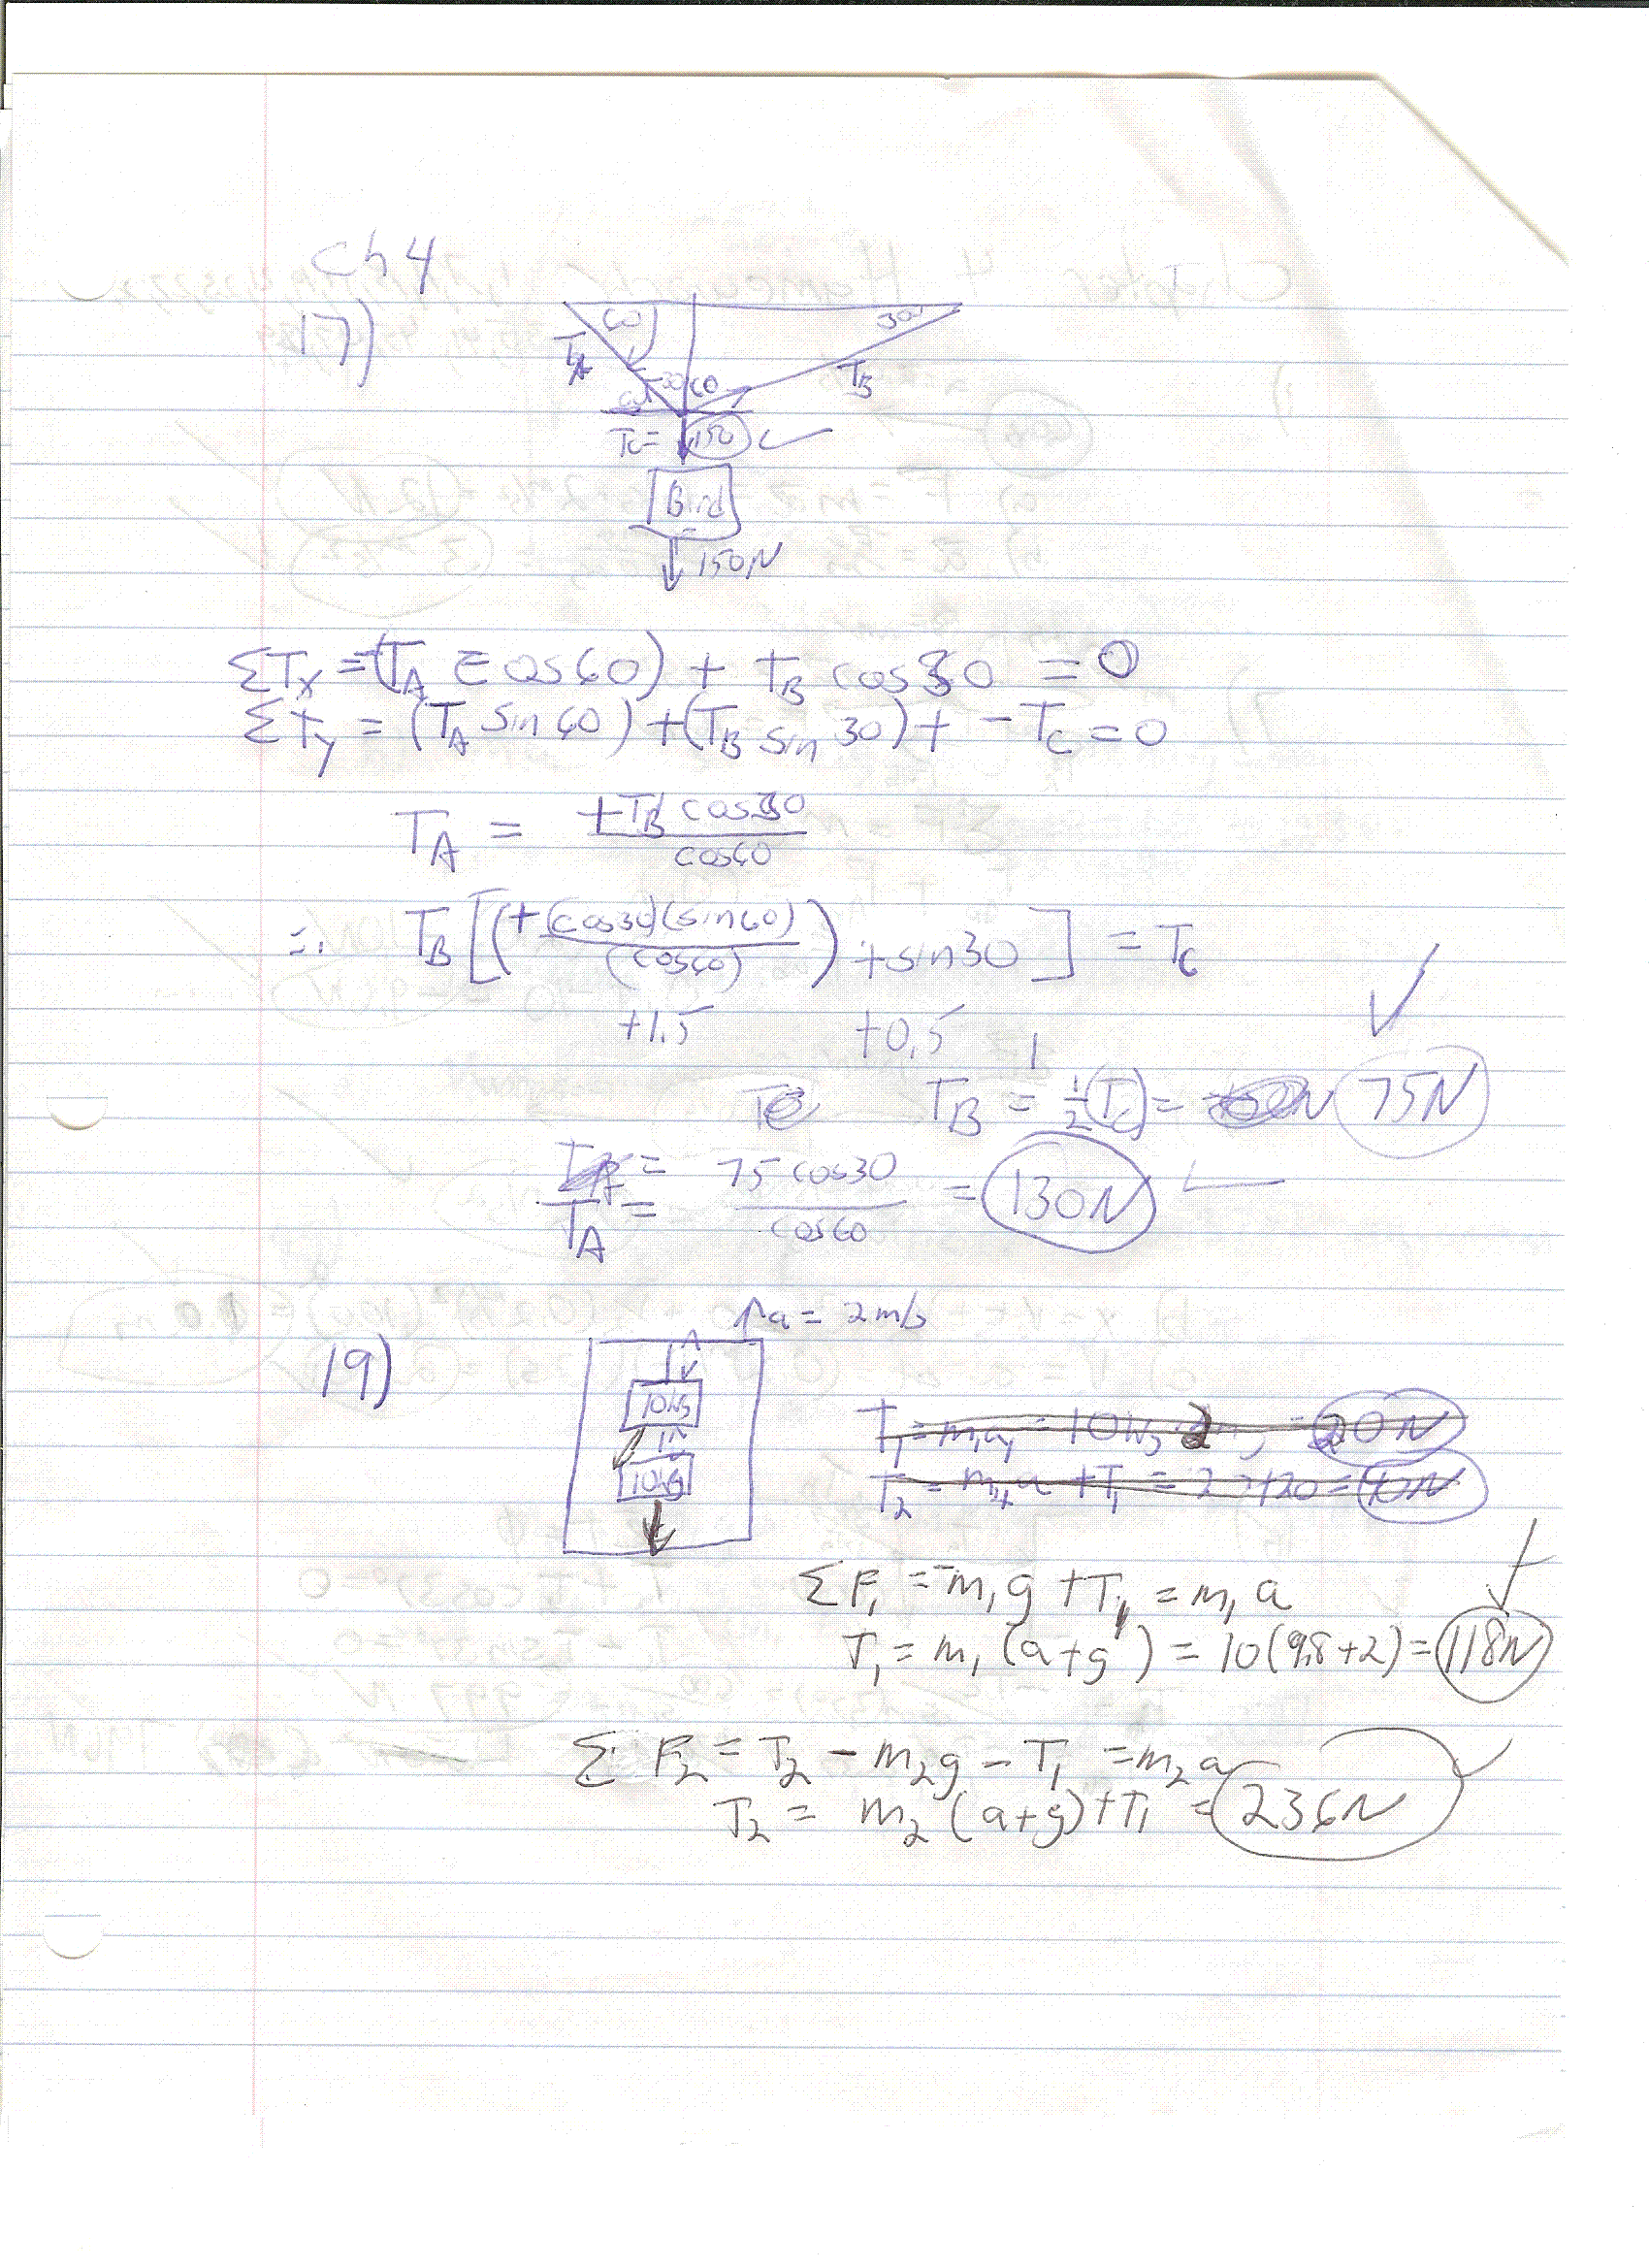 Ch 4
17)
60 30
TA 30 60 TB
60
Tc = 150
Bird
150N
ΣTx = -(TA cos60) + TB cos30 = 0
ΣTy = (TA sin 60) + (TB sin 30) + - Tc = 0
TA = +TB cos30 / cos60
∴ TB [(+(cos30)(sin60) / (cos60)) + sin30] = Tc
+1.5 +0.5
TB = 1/2 (Tc) = 75N
TA = 75 cos30 / cos60 = 130N
↑a = 2 m/s
19)
10kg
10kg
T1 = m1a1 = 10kg 2 = 20N
T2 = a + T1 = 20 + 20 = 40N
ΣF1 = -m1g + T1 = m1a
T1 = m1 (a+g) = 10(9.8+2) = 118N
ΣF2 = T2 - m2g - T1 = m2a
T2 = m2 (a+g) + T1 = 236N